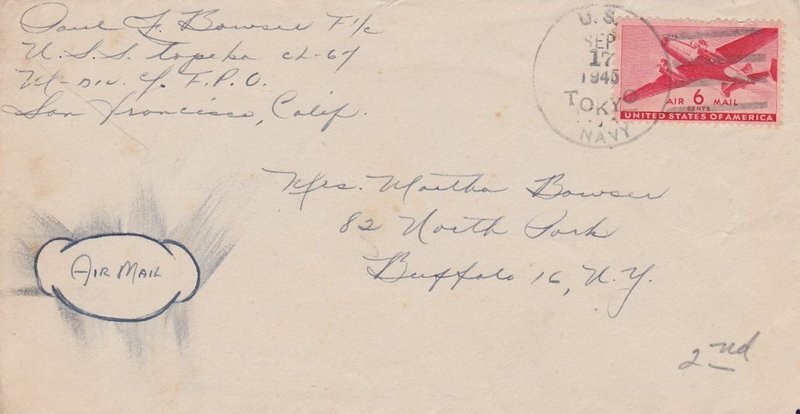 Paul F. Bowser F1/c
U.S.S. Topeka CL-67
M-Div. % F.P.O.
San Francisco, Calif.
U.S.
SEP
17
1945
TOKYO
NAVY
AIR 6 MAIL
CENTS
UNITED STATES OF AMERICA
Mrs. Martha Bowser
82 North Park
Buffalo 16, N.Y.
AIR MAIL
2nd